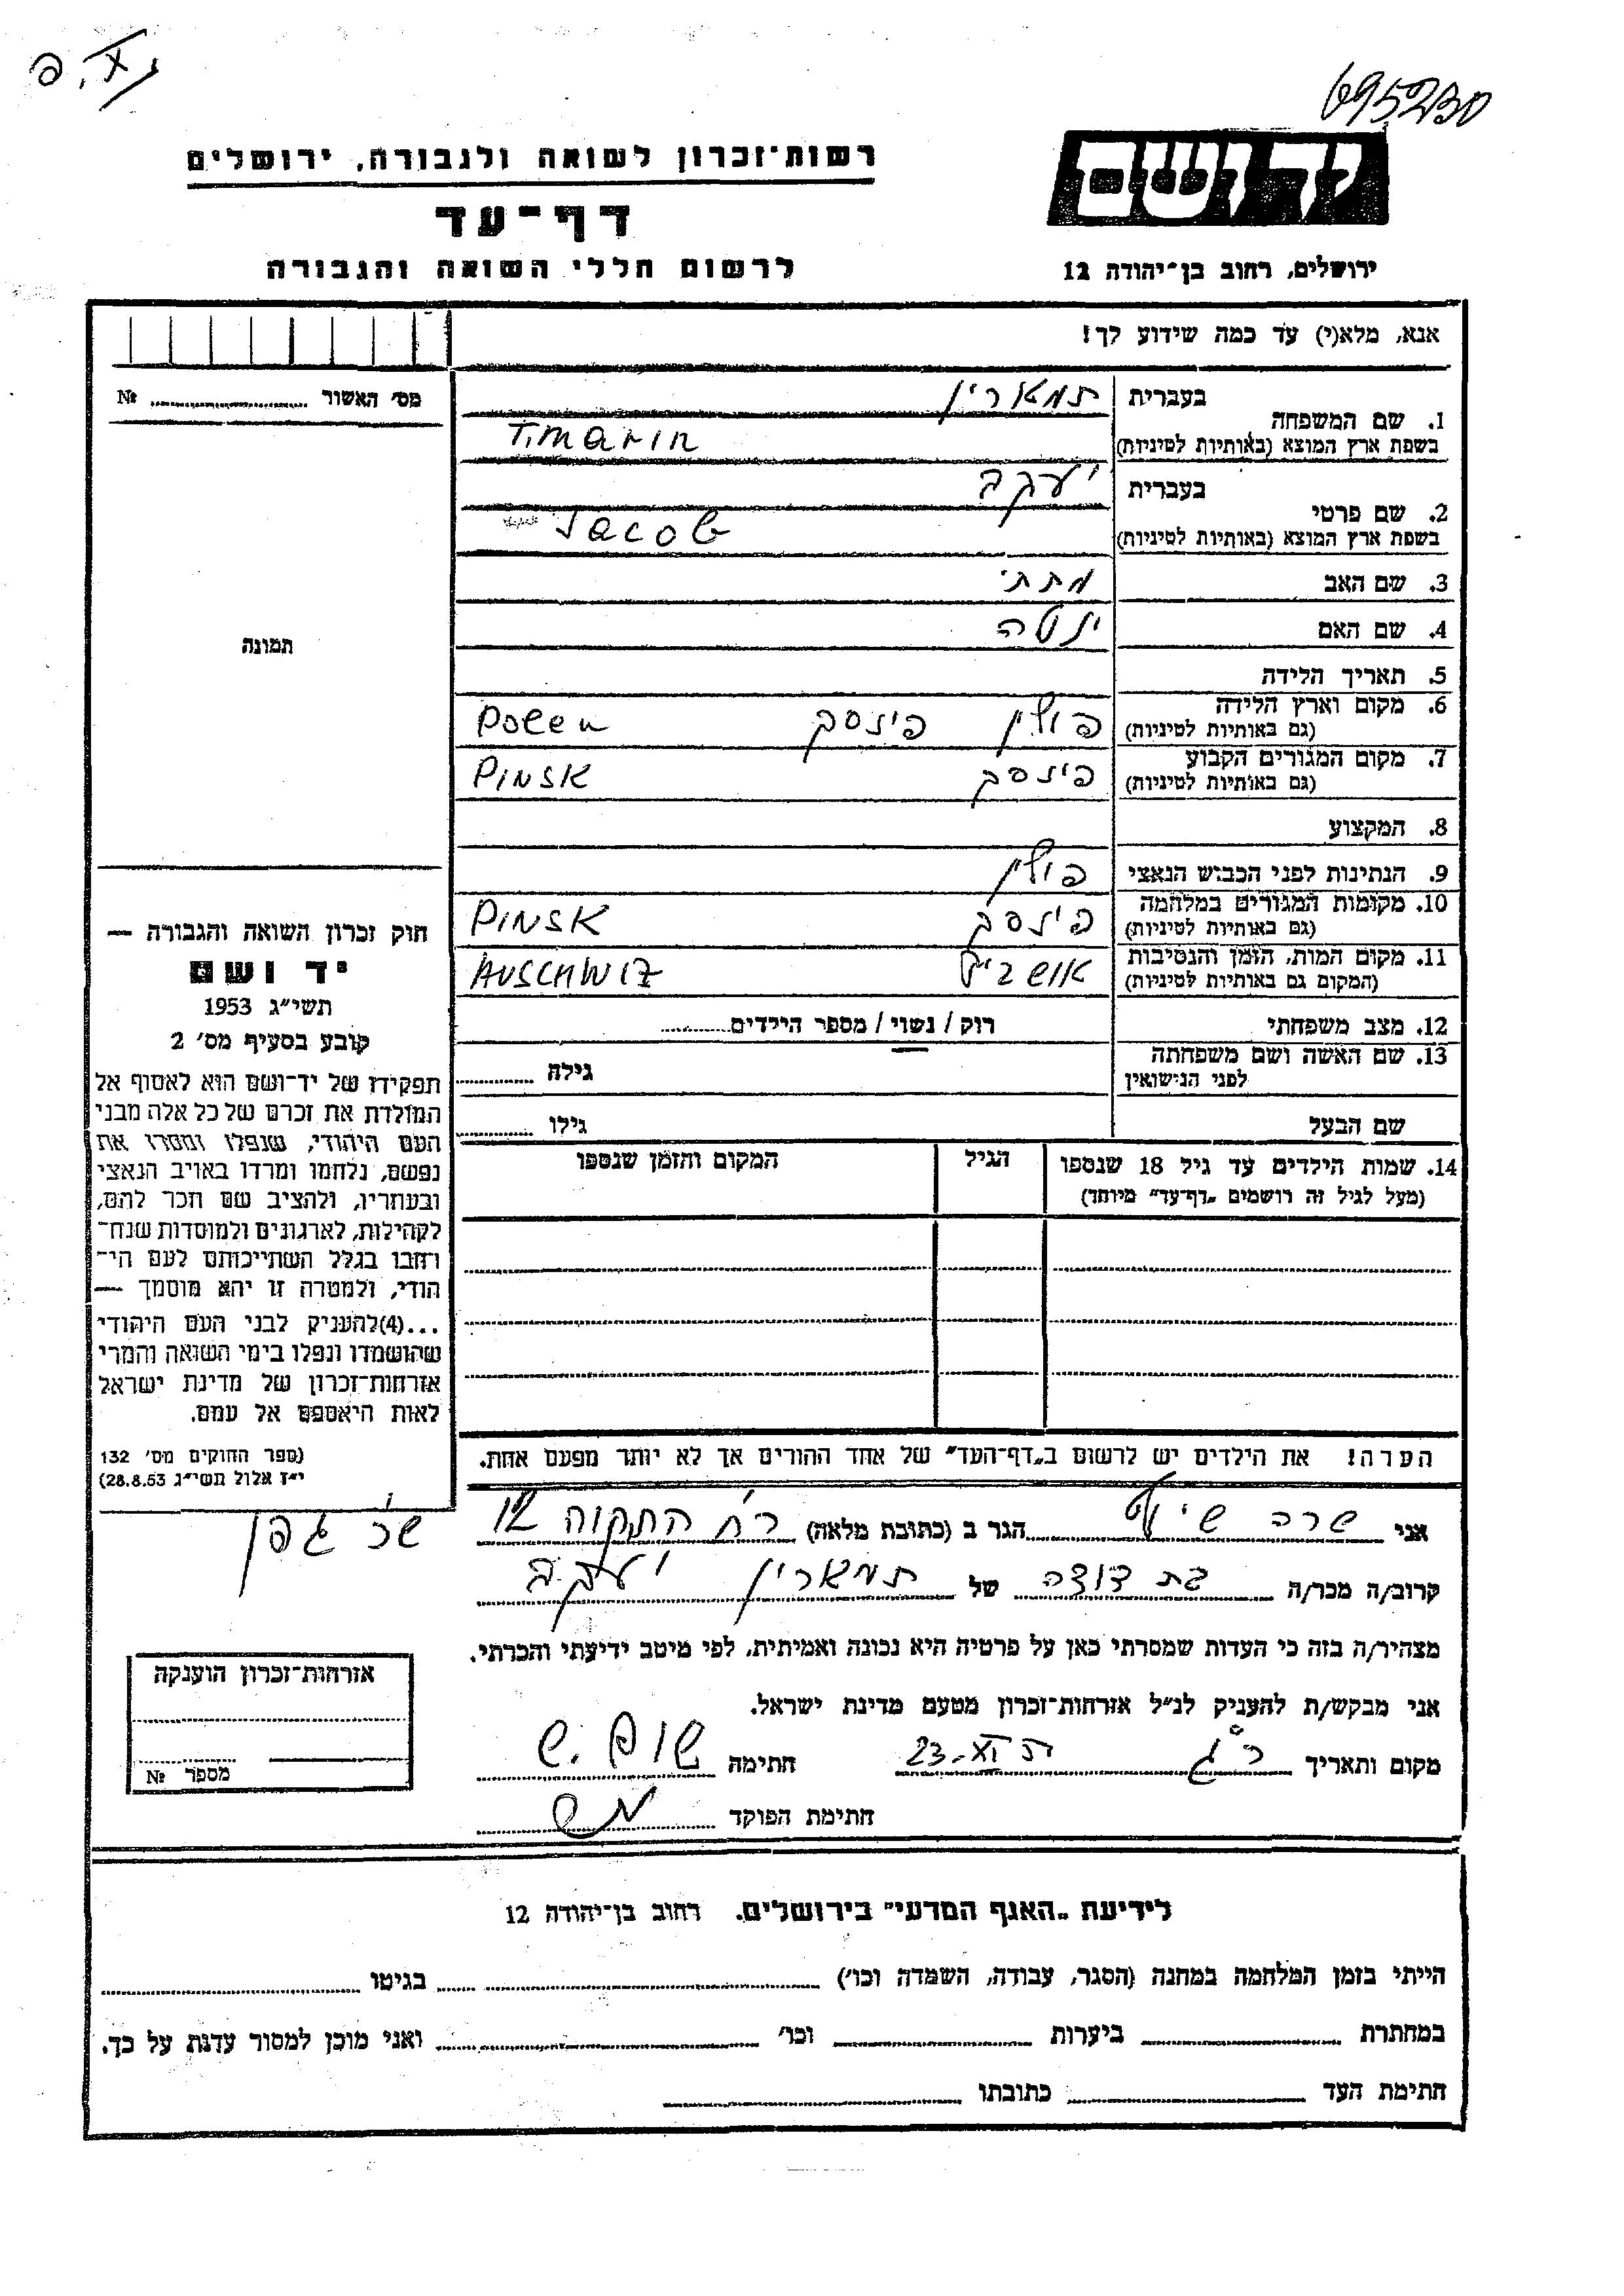 695230
יד ושם
רשות־זכרון לשואה ולגבורה, ירושלים
דף־עד
לרשום חללי השואה והגבורה
ירושלים, רחוב בן־יהודה 12
אנא, מלא(י) עד כמה שידוע לך!
מס׳ האשור № ....................
1. שם המשפחה
בעברית תמארין
בשפת ארץ המוצא (באותיות לטיניות) Timarin
2. שם פרטי
בעברית יעקב
בשפת ארץ המוצא (באותיות לטיניות) Jacob
3. שם האב מתתי
4. שם האם ינטה
5. תאריך הלידה
6. מקום וארץ הלידה פולין פינסק Polen
(גם באותיות לטיניות)
7. מקום המגורים הקבוע פינסק PINSK
(גם באותיות לטיניות)
8. המקצוע
9. הנתינות לפני הכבוש הנאצי פולין
10. מקומות המגורים במלחמה פינסק PINSK
(גם באותיות לטיניות)
11. מקום המות, הזמן והנסיבות אושביץ AUSCHWIZ
(המקום גם באותיות לטיניות)
12. מצב משפחתי רוק / נשוי / מספר הילדים..........
13. שם האשה ושם משפחתה
לפני הנישואין גילה ..........
שם הבעל גילו ..........
14. שמות הילדים עד גיל 18 שנספו הגיל המקום והזמן שנספו
(מעל לגיל זה רושמים „דף־עד״ מיוחד)
הערה! את הילדים יש לרשום ב„דף־העד״ של אחד ההורים אך לא יותר מפעם אחת.
תמונה
חוק זכרון השואה והגבורה —
יד ושם
תשי״ג 1953
קובע בסעיף מס׳ 2
תפקידו של יד־ושם הוא לאסוף אל
המולדת את זכרם של כל אלה מבני
העם היהודי, שנפלו ומסרו את
נפשם, נלחמו ומרדו באויב הנאצי
ובעוזריו, ולהציב שם וזכר להם,
לקהילות, לארגונים ולמוסדות שנח־
רחבו בגלל השתייכותם לעם הי־
הודי, ולמטרה זו יהא מוסמך —
...(4)להעניק לבני העם היהודי
שהושמדו ונפלו בימי השואה והמרי
אזרחות־זכרון של מדינת ישראל
לאות היאספם אל עמם.
(ספר החוקים מס׳ 132
י״ז אלול תשי״ג 28.8.53)
אני שרה הגר ב (כתובת מלאה) רח׳ התקוה 12
שכ׳ גפן
קרוב/ה מכר/ה בת דודה של תמארין יעקב
מצהיר/ה בזה כי העדות שמסרתי כאן על פרטיה היא נכונה ואמיתית, לפי מיטב ידיעתי והכרתי.
אני מבקש/ת להעניק לנ״ל אזרחות־זכרון מטעם מדינת ישראל.
מקום ותאריך ר״ג 23-XI חתימה
חתימת הפוקד
אזרחות־זכרון הוענקה
מספר №
לידיעת „האגף המדעי״ בירושלים. רחוב בן־יהודה 12
הייתי בזמן המלחמה במחנה (הסגר, עבודה, השמדה וכו׳) .................... בגיטו ....................
במחתרת .................... ביערות .................... וכו׳ .................... ואני מוכן למסור עדות על כך.
חתימת העד .................... כתובתו ....................